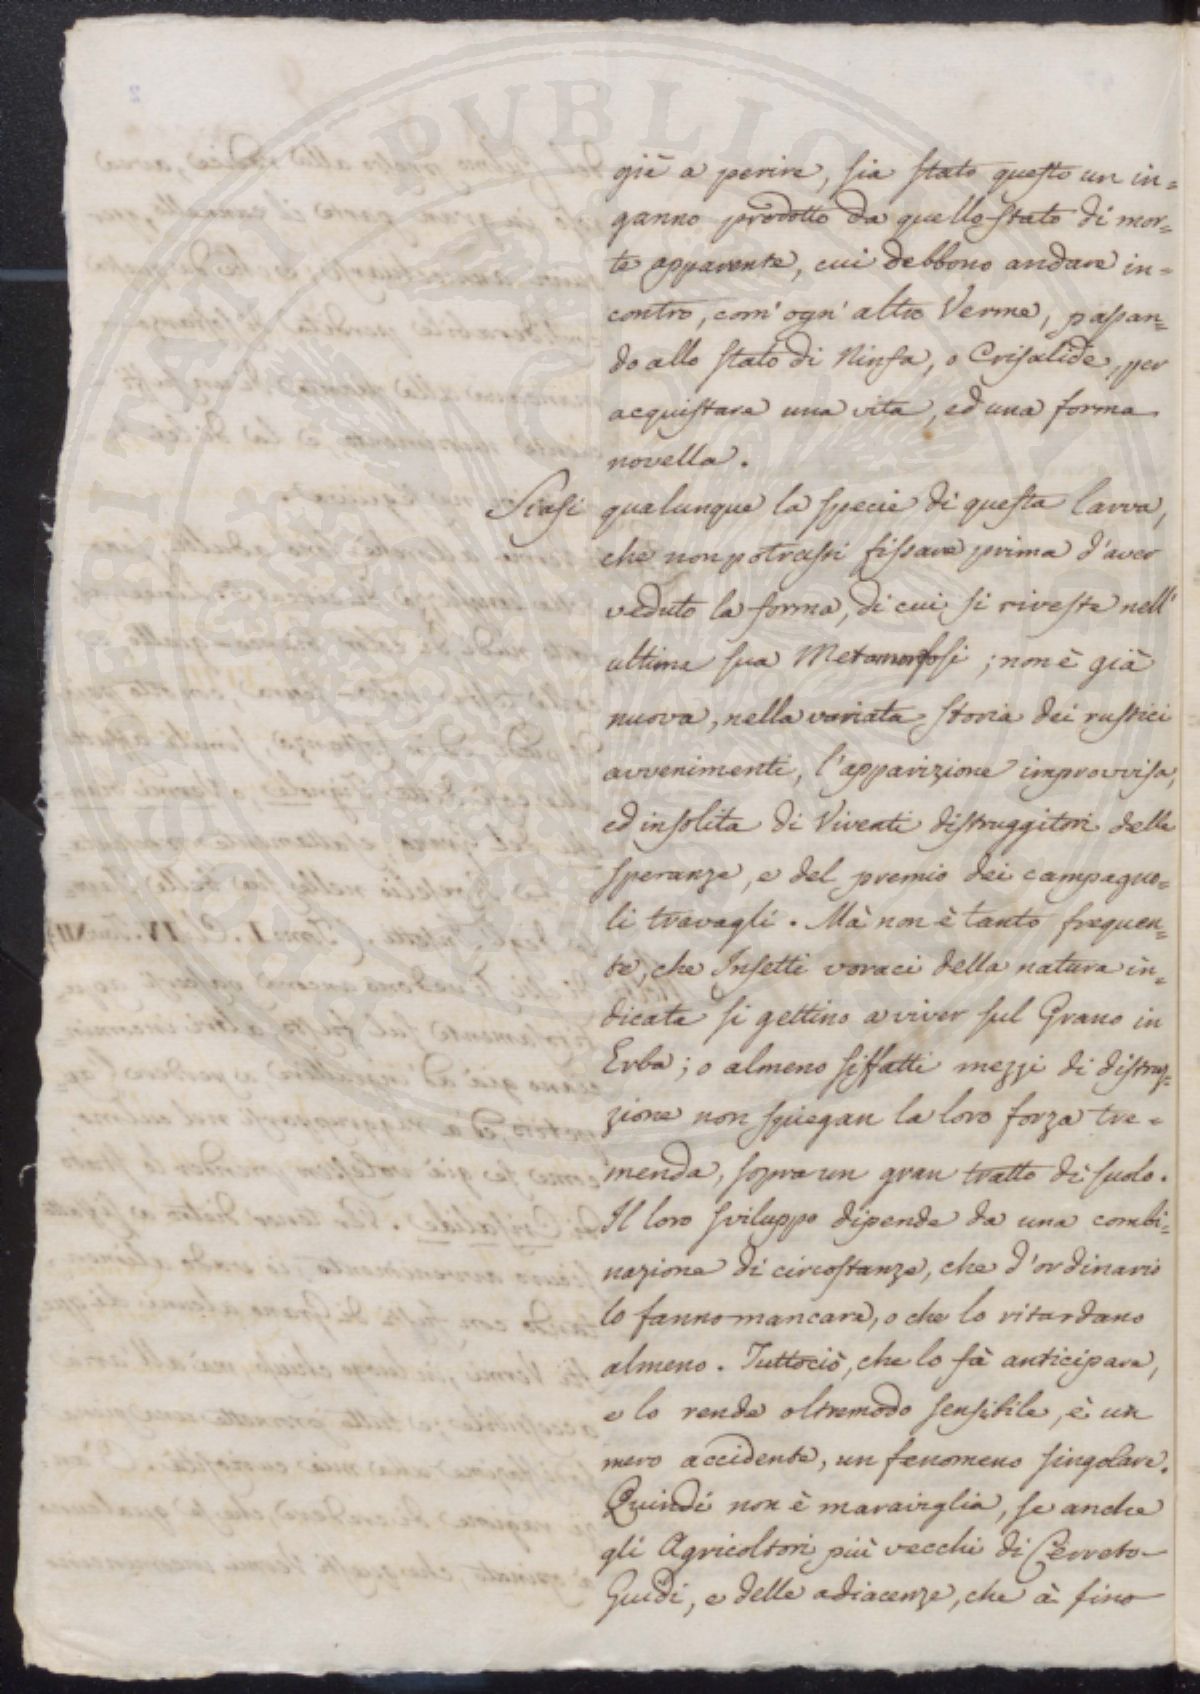 già a perire, sia stato questo un in=
ganno prodotto da quello stato di mor=
te apparente, cui debbono andare in=
contro, com' ogn' altro Verme, passan=
do allo stato di Ninfa, o Crisalide, per
acquistare una vita, ed una forma
novella.
Siasi qualunque la specie di questa larva,
che non potrassi fissare prima d'aver
veduto la forma, di cui si riveste nell'
ultima sua Metamorfosi; non è già
nuova, nella variata storia dei rustici
avvenimenti, l'apparizione improvvisa,
ed insolita di Viventi distruggitori delle
speranze, e del premio dei campagno=
li travagli. Mà non è tanto frequen=
te, che Insetti voraci della natura in=
dicata si gettino a viver sul Grano in
Erba; o almeno siffatti mezzi di distru=
zione non spiegan la loro forza tre=
menda, sopra un gran tratto di suolo.
Il loro sviluppo dipende da una combi=
nazione di circostanze, che d'ordinario
lo fanno mancare, o che lo ritardano
almeno. Tuttociò, che lo fà anticipare,
e lo rende oltremodo sensibile, è un
mero accidente, un fenomeno singolare.
Quindi non è maraviglia, se anche
gli Agricoltori più vecchi di Cerreto-
Guidi, e delle adiacenze, che à fino